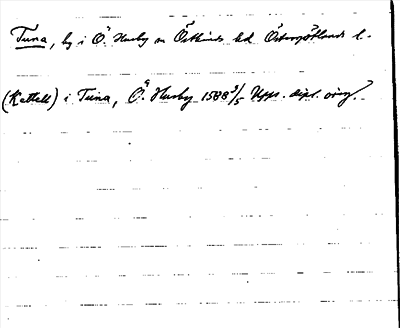 Tuna, by i Ö. Husby sn Östkinds hd Östergötlands l.
(Kettell) i Tuna, Ö. Husby 1588 3/5 Upps. dipl. orig.